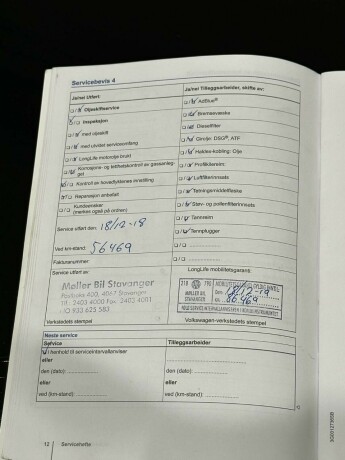 Servicebevis 4
Ja/nei Utført:
Oljeskiftservice
Inspeksjon
med oljeskift
med utvidet serviceomfang
LongLife motorolje brukt
Kontroll av hovedlyktenes innstilling
Reparasjon anbefalt
Kundeønsker
(merkes også på ordren)
Service utført den: 18/12-18
Ved km-stand: 56469
Fakturanummer:
Service utført av
Møller Bil Stavanger
Postboks 400, 4067 Stavanger
Tlf: 2403 4000 Fax: 2403 4001
Verkstedets stempel
Ja/nei Tilleggsarbeider, skifte av:
AdBlue®
Bremsevæske
Dieselfilter
Girolje: DSG®, ATF
Haldex-kobling: Olje
Luftfilterinnsats
Tetningsmiddelflaske
Støv- og pollenfilterinnsats
Tannreim
Tennplugger
LongLife mobilitetsgaranti:
MØLLER BIL
STAVANGER
56469
Volkswagen-verkstedets stempel
Neste service
Service
Tilleggsarbeider
I henhold til serviceintervallanviser
eller
den (dato):
eller
ved (km-stand):
den (dato):
eller
ved (km-stand):
12 Servicehefte